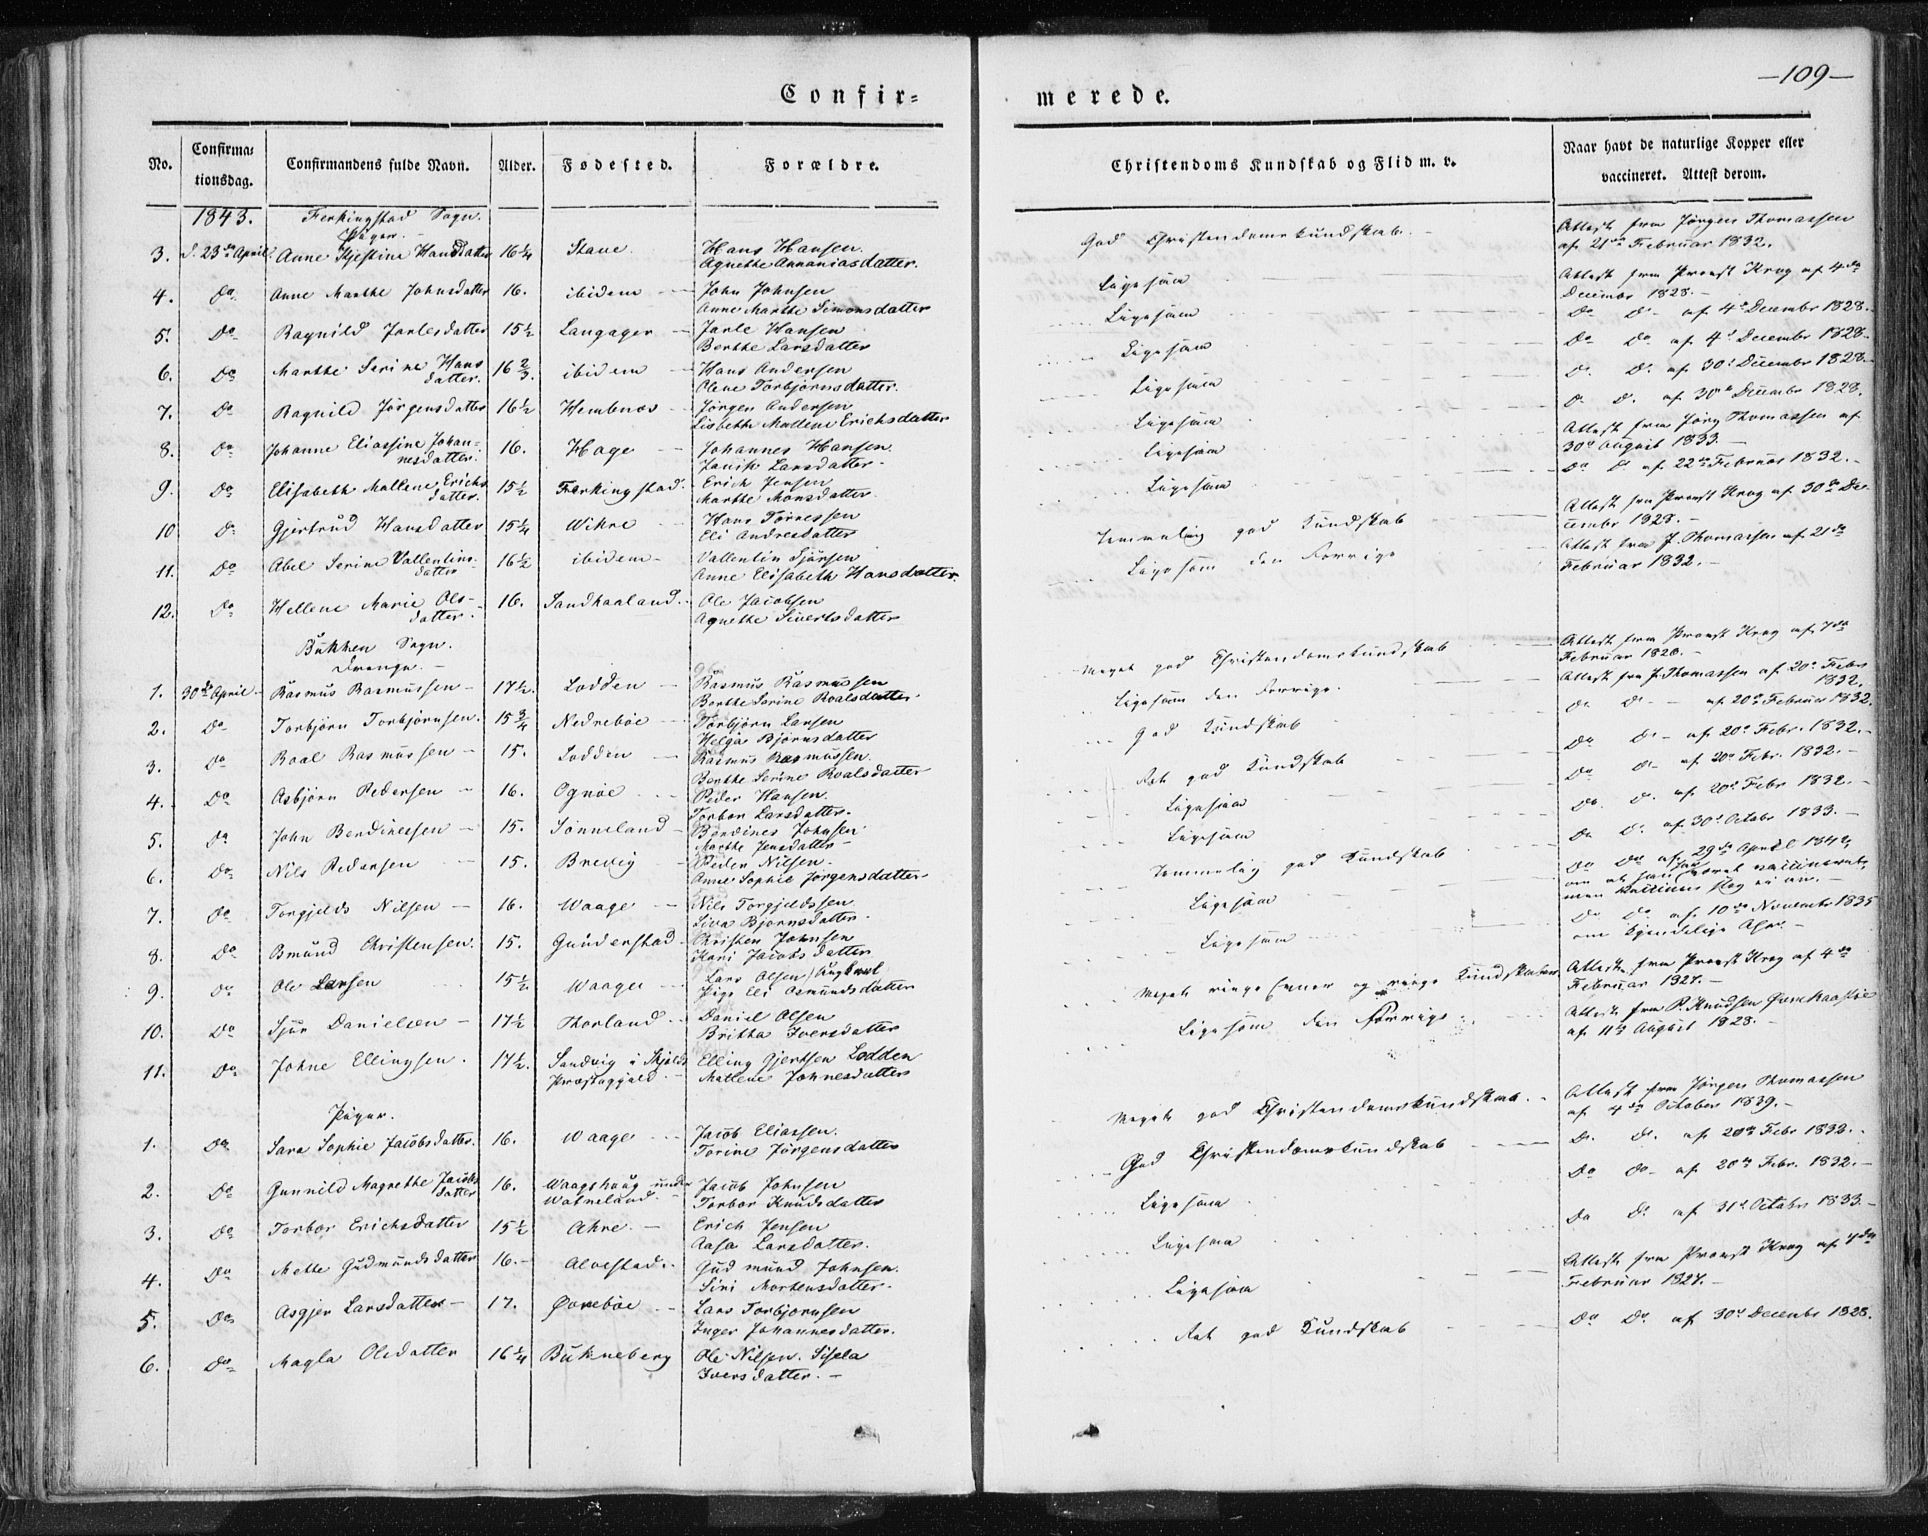 —109—
Confir= merede.
No. Confirma= tionsdag. Confirmandens fulde Navn. Alder. Fødested. Forældre. Christendoms Kundskab og Flid m. v. Naar havt de naturlige Kopper eller vaccineret. Attest derom.
1843. Ferkingstad Sogn.
Piger.
3. d. 23de April Anne Kjestine Hansdatter 16 1/4 Stave Hans Hansen. Agnethe Annaniasdatter. God Christendomskundskab. Attest fra Jørgen Thomassen af 21de Februar 1832.
4. Do Anne Marthe Johnsdatter 16. ibidem John Johnsen Anne Marthe Simonsdatter Ligesaa Attest fra Provst Krog af 4de December 1828.
5. Do Ragnild Jarlesdatter 15 1/2 Langager Jarle Hansen Berthe Larsdatter Ligesaa Do Do af 4de Decembr 1828.
6. Do Marthe Serine Hansdatter. 16 2/3. ibidem Hans Andersen Olene Torbjørnsdatter. Ligesaa Do Do af 4d December 1828.
7. Do Ragnild Jørgensdatter 16 1/2 Hembnæs Jørgen Andersen Lisbethe Mallene Erichsdatter Ligesaa Do Do af 30d December 1828.
8. Do Johanne Eliassine Johannesdatter. 16. Hage Johannes Hansen Janik Larsdatter. Ligesaa D. D. af 30te December 1828.
9. Do Elisabeth Mallene Erichsdatter. 15 1/2 Ferkingstad. Erich Jensen Marthe Monsdatter. Ligesaa Attest fra Jørg Thomassen af 30d August 1833.
10 Do Gjertrud Hansdatter 15 1/4 Wikre Hans Tørressen Eli Andresdatter Ligesaa Do D af 22de Februar 1832.
11. Do Abel Serine Vallentinsdatter 16 1/2 ibidem Vallentin Sjursen Anne Elisabeth Hansdatter. Temmelig god Kundskab Attest fra Provst Krog af 30te December 1828.
12. Do Hellene Marie Olsdatter. 16. Sandhaaland Ole Jacobsen Agnethe Sivertsdatter Ligesom den Forrige Attest fra J. Thomassen af 21de Februar 1832.
Bukken Sogn.
Drenge.
1. 30de April Rasmus Rasmussen 17 1/2. Lodden Rasmus Rasmussen Berthe Serine Roalsdatter Meget god Christendomskundskab Attest fra Provst Krog af 7de Februar 1828.
2. Do Torbjørn Torbjørnsen. 15 3/4 Nedrebøe Torbjørn Larsen Helga Bjørnsdatter Ligesom den Forrige. Attest fra J. Thomassen af 20d Febr 1832.
3. Do Roal Rasmussen 15. Lodden Rasmus Rasmussen. Berthe Serine Roalsdatter God Kundskab Do Do af 20d Februar 1832.
4. Do Asbjørn Pedersen 16. Ognøe Peder Hansen. Torbor Larsdatter. Ret god Kundskab Do D. af 20d Febr. 1832.
5. Do John Bendinessen 15. Sønneland Bendines Johnsen Marthe Jensdatter Ligesaa Do D. af 20d Febr. 1832.
6. Do Nils Pedersen 15. Brevig Peder Nilsen. Anne Sophie Jørgensdatter Ligesaa Do. D. af 20d Febr 1832.
7. Do Torgjelds Nilsen 16. Waage Nils Torgjeldssen Siva Bjørnsdatter. Temmelig god Kundskab Do D. af 30d Octobr 1833.
8. Do Omund Christensen. 15. Gunderstad Christen Johnsen Kari Jacobsdatter Ligesaa Do Do af 29de April 1842, om at han har været vaccineret, men Vaccinen slog ei an.
9. Do Ole Larsen 15 1/2 Waage Lars Olsen, Ungkarl Pige Eli Osmundsdatter Ligesaa Do Do af 10de Novembr 1835 om kjendelige Ar.
10. Do Sjur Danielsen 17 1/2 Thorland Daniel Olsen Britha Iversdatter Meget ringe Evner og ringe Kundskaber Attest fra Provst Krog af 4de Februar 1827.
11. Do Johne Ellingsen. 17 1/2. Sandvig i Skjolds Præstegjeld. Elling Gjertsen Lodden Mallene Johnesdatter Ligesom den Forrige. Attest fra R. Knudsen af 11te August 1828.
Piger.
1. Do Sara Sophie Jacobsdatter. 16. Waage Jacob Eliassen. Torine Jørgensdatter Meget god Christendomskundskab. Attest fra Jørgen Thomassen af 4de October 1839.
2. Do Gunnild Magrethe Jacobsdatter 16. Waagshaug under Watneland. Jacob Johnsen Torbor Knudsdatter God Christendomskundskab D. D. af 20de Febr 1832.
3. Do Torbor Erichsdatter 15 1/2 Ahre. Erich Jensen Aasa Larsdatter. Ligesaa Do Do af 20de Febr. 1832.
4. Do Mette Gudmundsdatter 16. Alvestad. Gudmund Johnsen. Siri Mortensdatter. Ligesaa Do D. af 31d Octobr 1833.
5. Do Asgjer Larsdatter 17. Øvrebøe Lars Torbjørnsen Inger Johannesdatter. Ligesaa Attest fra Provst Krog af 7de Februar 1827.
6. Do Magla Olsdatter 16 1/4 Bukneberg Ole Nilsen. Sisela Iversdatter. Ret god Kundskab Do Do af 30d Decembr 1828.